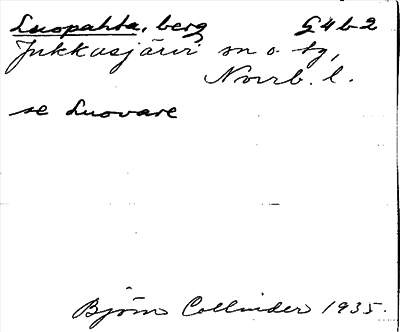 Luopahta, berg G4b-2
Jukkasjärvi sn o. tg,
Norrb. l.
se Luovare
Björn Collinder 1935.